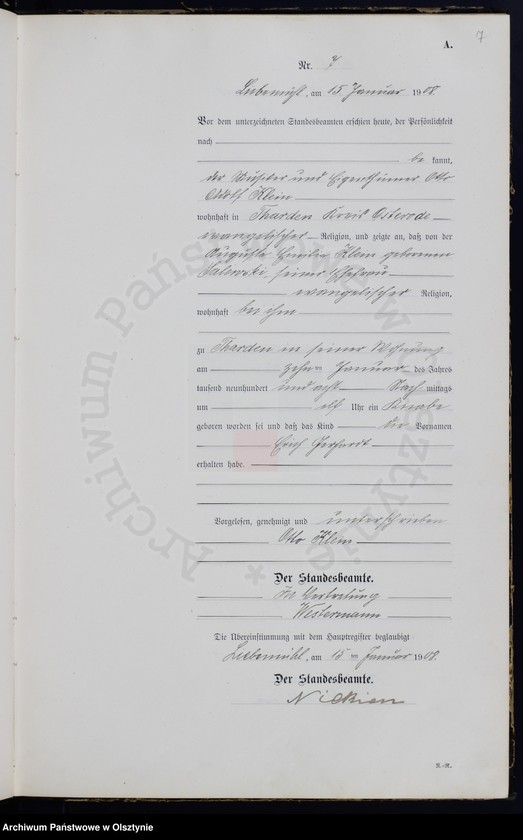 7
A.
Nr. 7
Liebemühl, am 15. Januar 1908.
Vor dem unterzeichneten Standesbeamten erschien heute, der Persönlichkeit
nach
be kannt,
der und Eigenthümer Otto
Adolf Klein
wohnhaft in Tharden Kreis Osterode
evangelischer Religion, und zeigte an, daß von der
Auguste Emilie Klein geborenen
Salewski, seiner Ehefrau
evangelischer Religion,
wohnhaft bei ihm
zu Tharden in seiner Wohnung
am zehnten Januar des Jahres
tausend neunhundert und acht Nach mittags
um elf Uhr ein Knabe
geboren worden sei und daß das Kind die Vornamen
Erich Gerhardt
erhalten habe.
Vorgelesen, genehmigt und unterschrieben
Otto Klein
Der Standesbeamte.
In Vertretung
Westermann
Die Übereinstimmung mit dem Hauptregister beglaubigt
Liebemühl, am 15ten Januar 1908.
Der Standesbeamte.
E.-R.
Archiwum Państwowe w Olsztynie
Archiwum Państwowe w Olsztynie